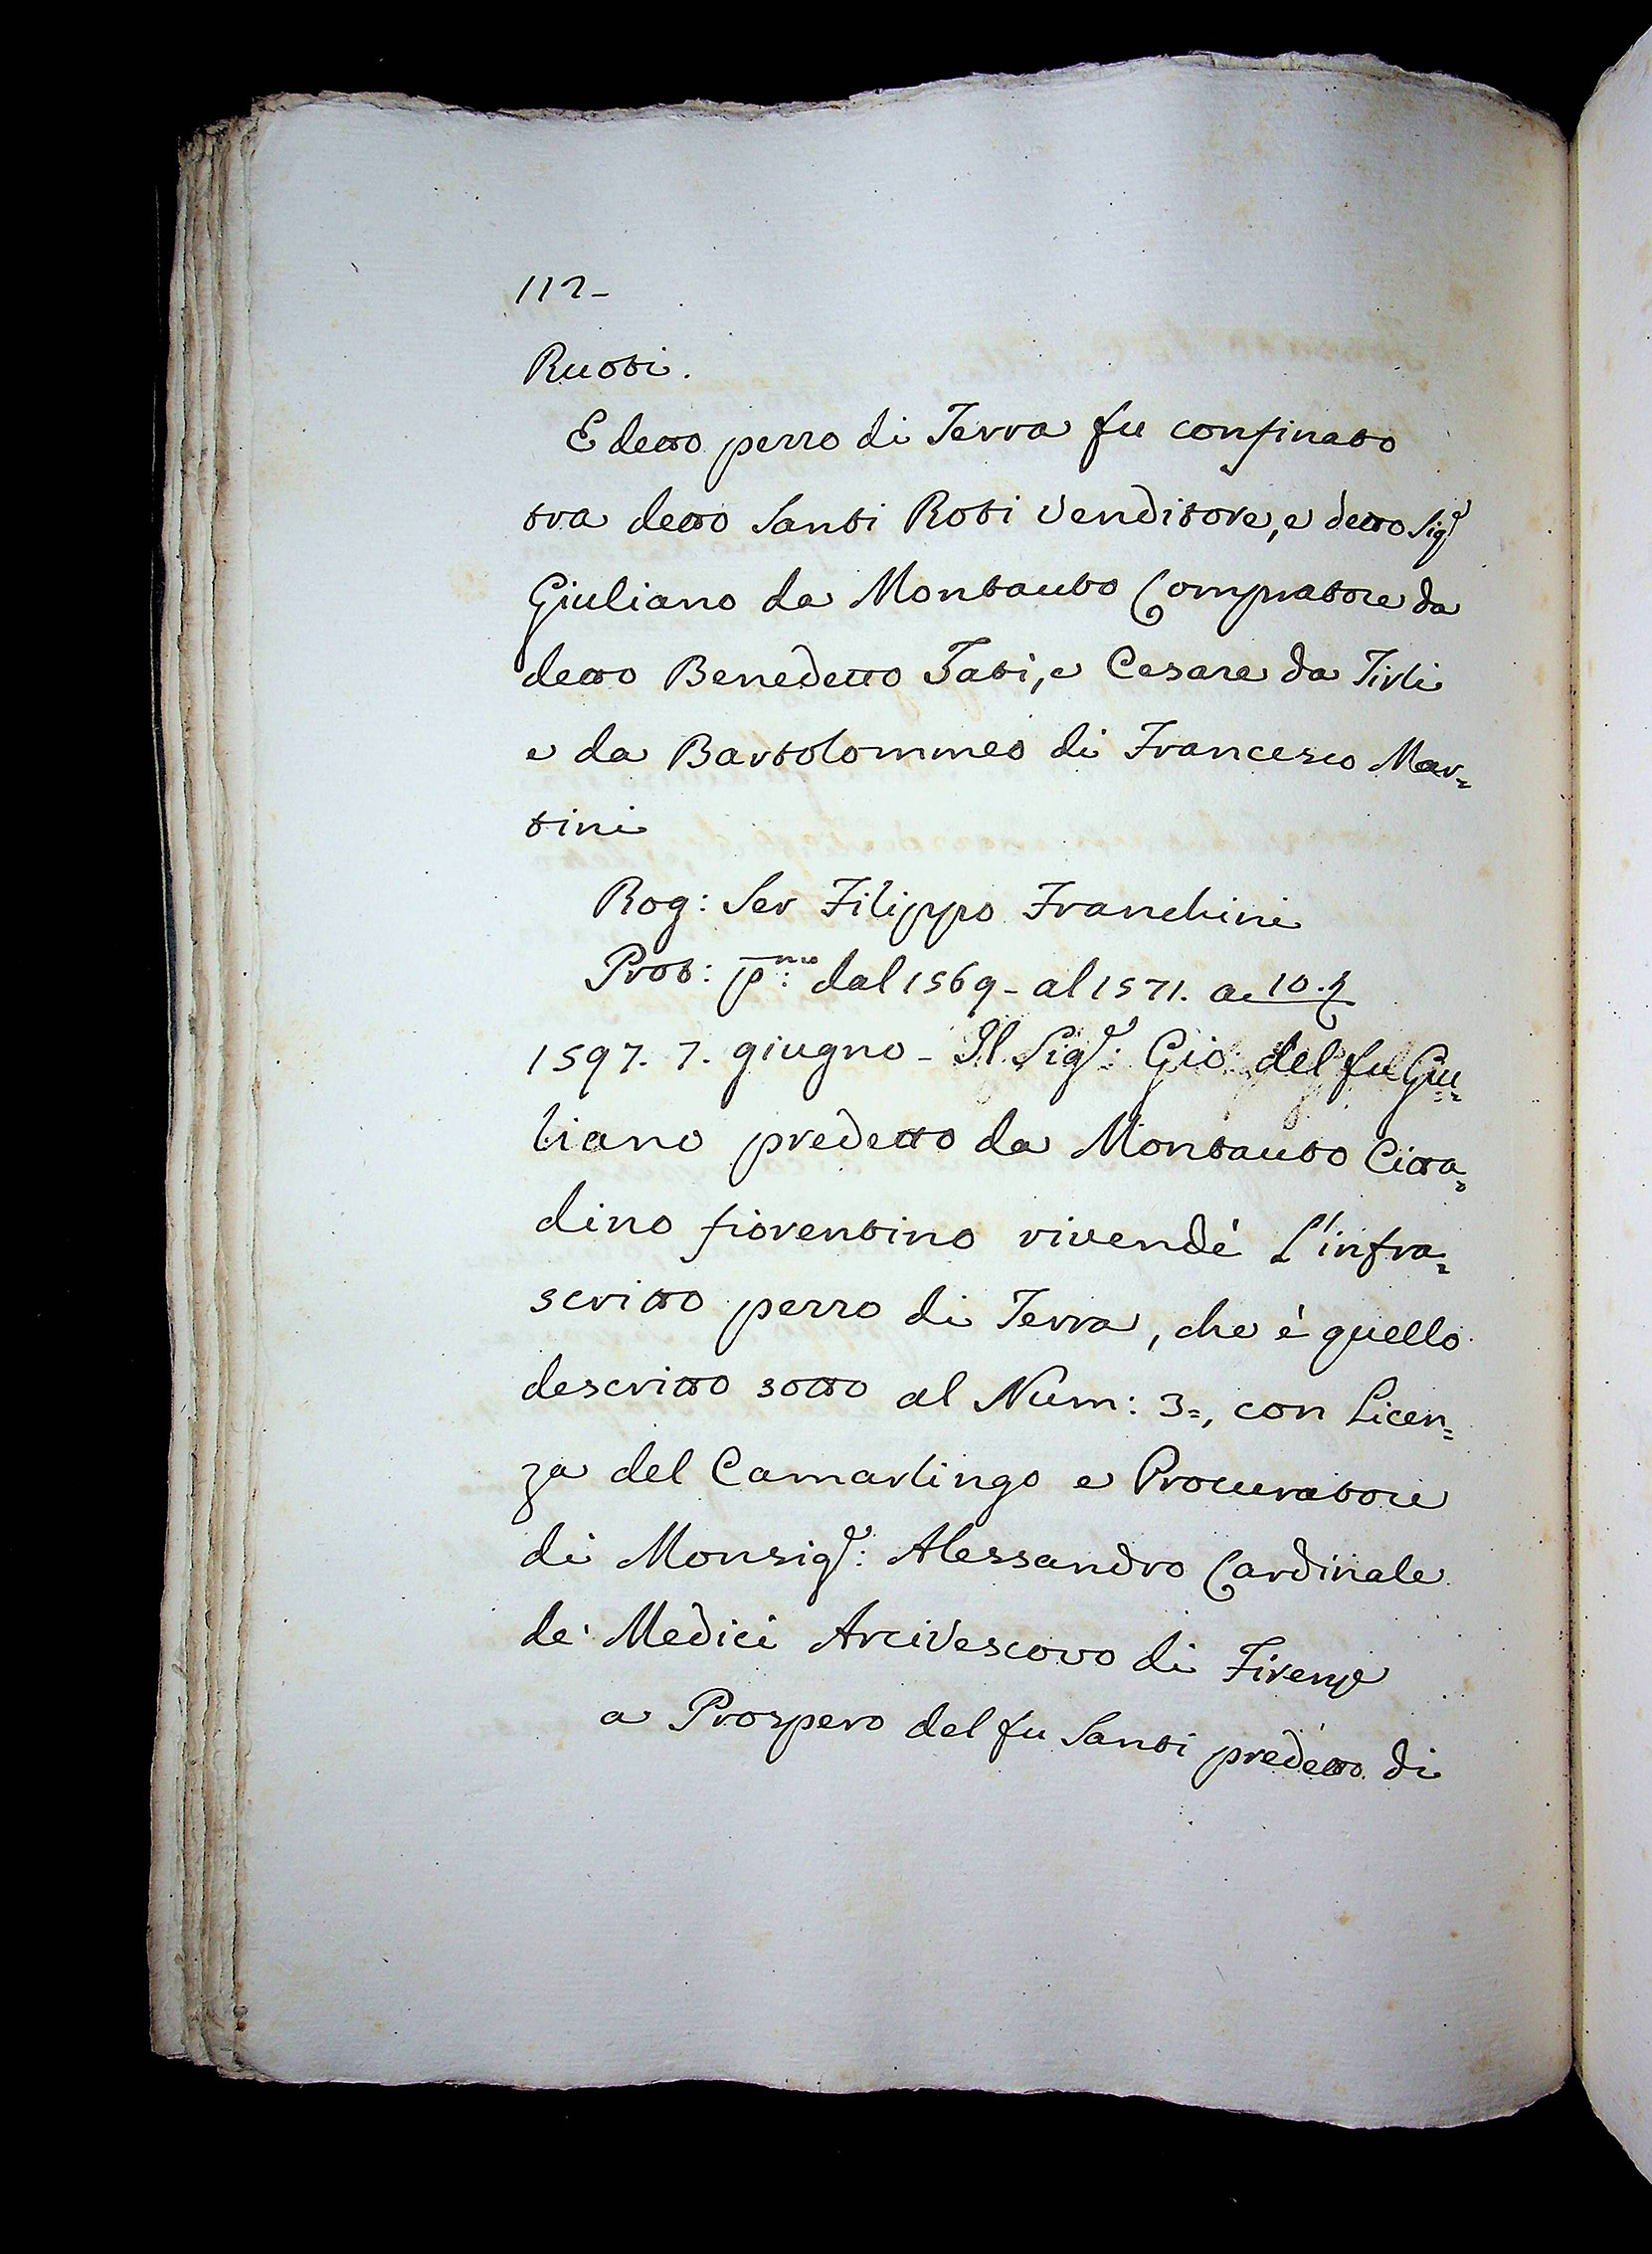 112-
Ruoti.
E detto pezzo di Terra fu confinato
tra detto Santi Roti Venditore, e detto Sigre
Giuliano da Montauto Compratore da
detto Benedetto Tati, e Cesare da Tirli
e da Bartolommeo di Francesco Mar=
tini
Rog: Ser Filippo Franchini
Prot: pmo: dal 1569- al 1571. a 10.
1597. 7. giugno - Il Sigre: Gio: del fu Giu=
liano predetto da Montauto Citta=
dino fiorentino rivendè L'infra=
scritto pezzo di Terra, che è quello
descritto sotto al Num: 3=, con Licen=
za del Camarlingo e Procuratore
di Monsigre: Alessandro Cardinale
de' Medici Arcivescovo di Firenze
a Prospero del fu Santi predetto di